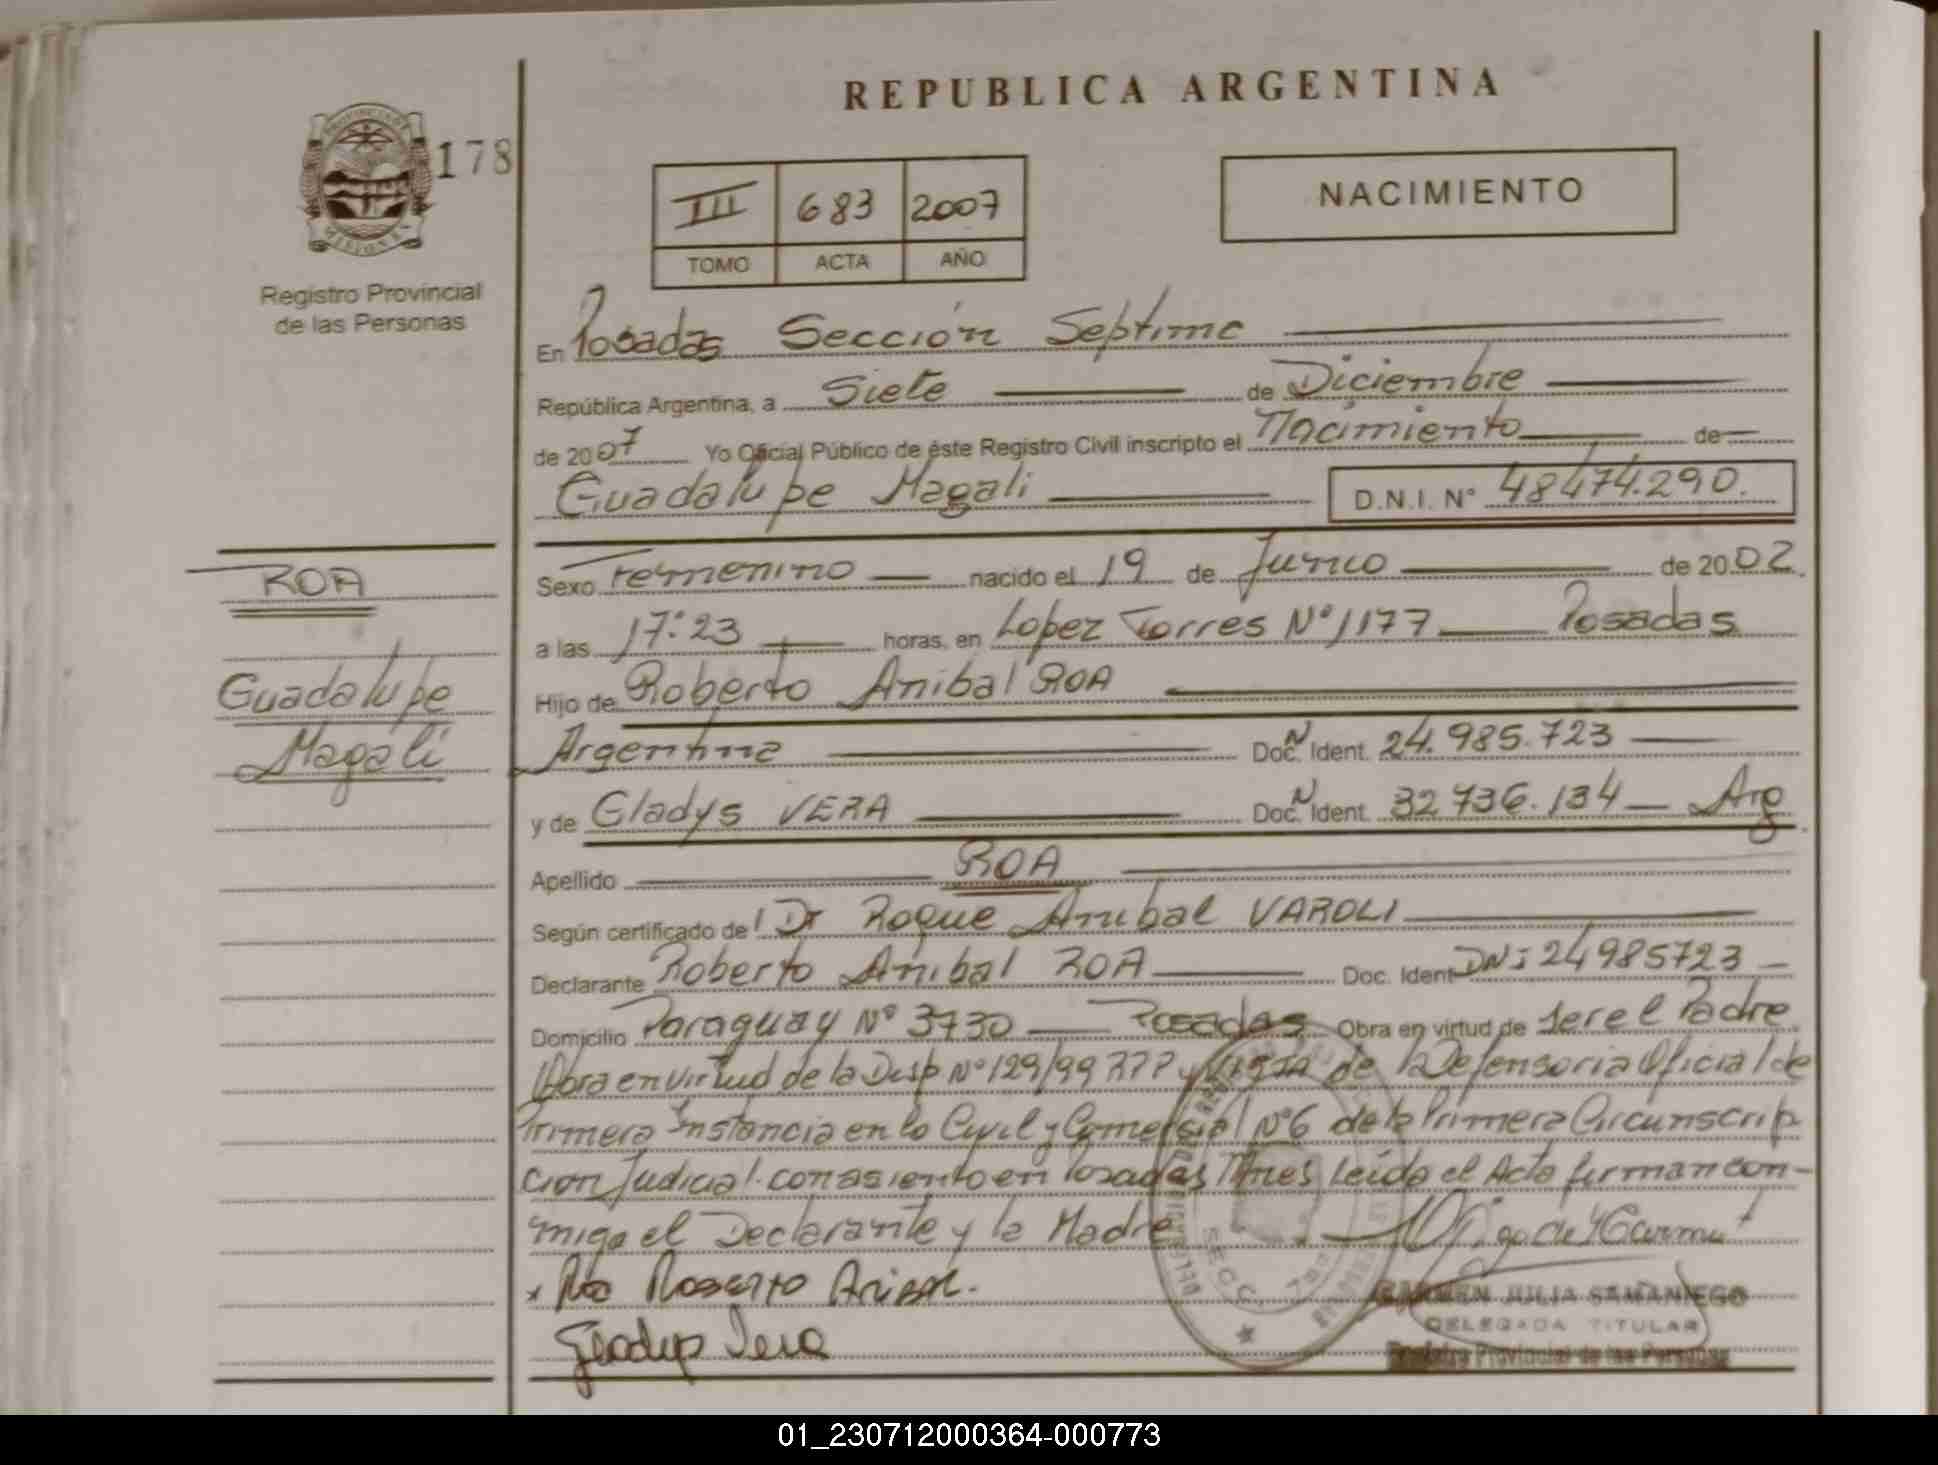 REPUBLICA ARGENTINA
178
III 683 2007
TOMO ACTA AÑO
NACIMIENTO
PROVINCIA DE
MISIONES
Registro Provincial
de las Personas
En Posadas Sección Septima
República Argentina, a Siete de Diciembre
de 2007 Yo Oficial Público de éste Registro Civil inscripto el Nacimiento de
Guadalupe Magali D.N.I. N° 48474.290.
ROA
Guadalupe
Magali
Sexo Femenino nacido el 19 de Junio de 2002.
a las 17:23 horas, en Lopez Torres N° 1177 Posadas
Hijo de Roberto Anibal ROA
Argentina Doc. N Ident. 24.985.723
y de Gladys VERA Doc. N Ident. 32736.134 Arg
Apellido ROA
Según certificado del Dr Roque Anibal VAROLI
Declarante Roberto Anibal ROA Doc. Ident DNI 24985723
Domicilio Paraguay N° 3730 Posadas Obra en virtud de ser el Padre
Obra en virtud de la Disp N° 129/99 RPP y Vista de la Defensoria Oficial de
Primera Instancia en lo Civil y Comercial N°6 de la Primera Circunscrip
cion Judicial con asiento en Posadas Mnes Leida el Acta firman con-
migo el Declarante y la Madre
Roa Roberto Anibal.
Gladys Vera
SECC. 7
CARMEN JULIA SAMANIEGO
DELEGADA TITULAR
Registro Provincial de las Personas
01_230712000364-000773